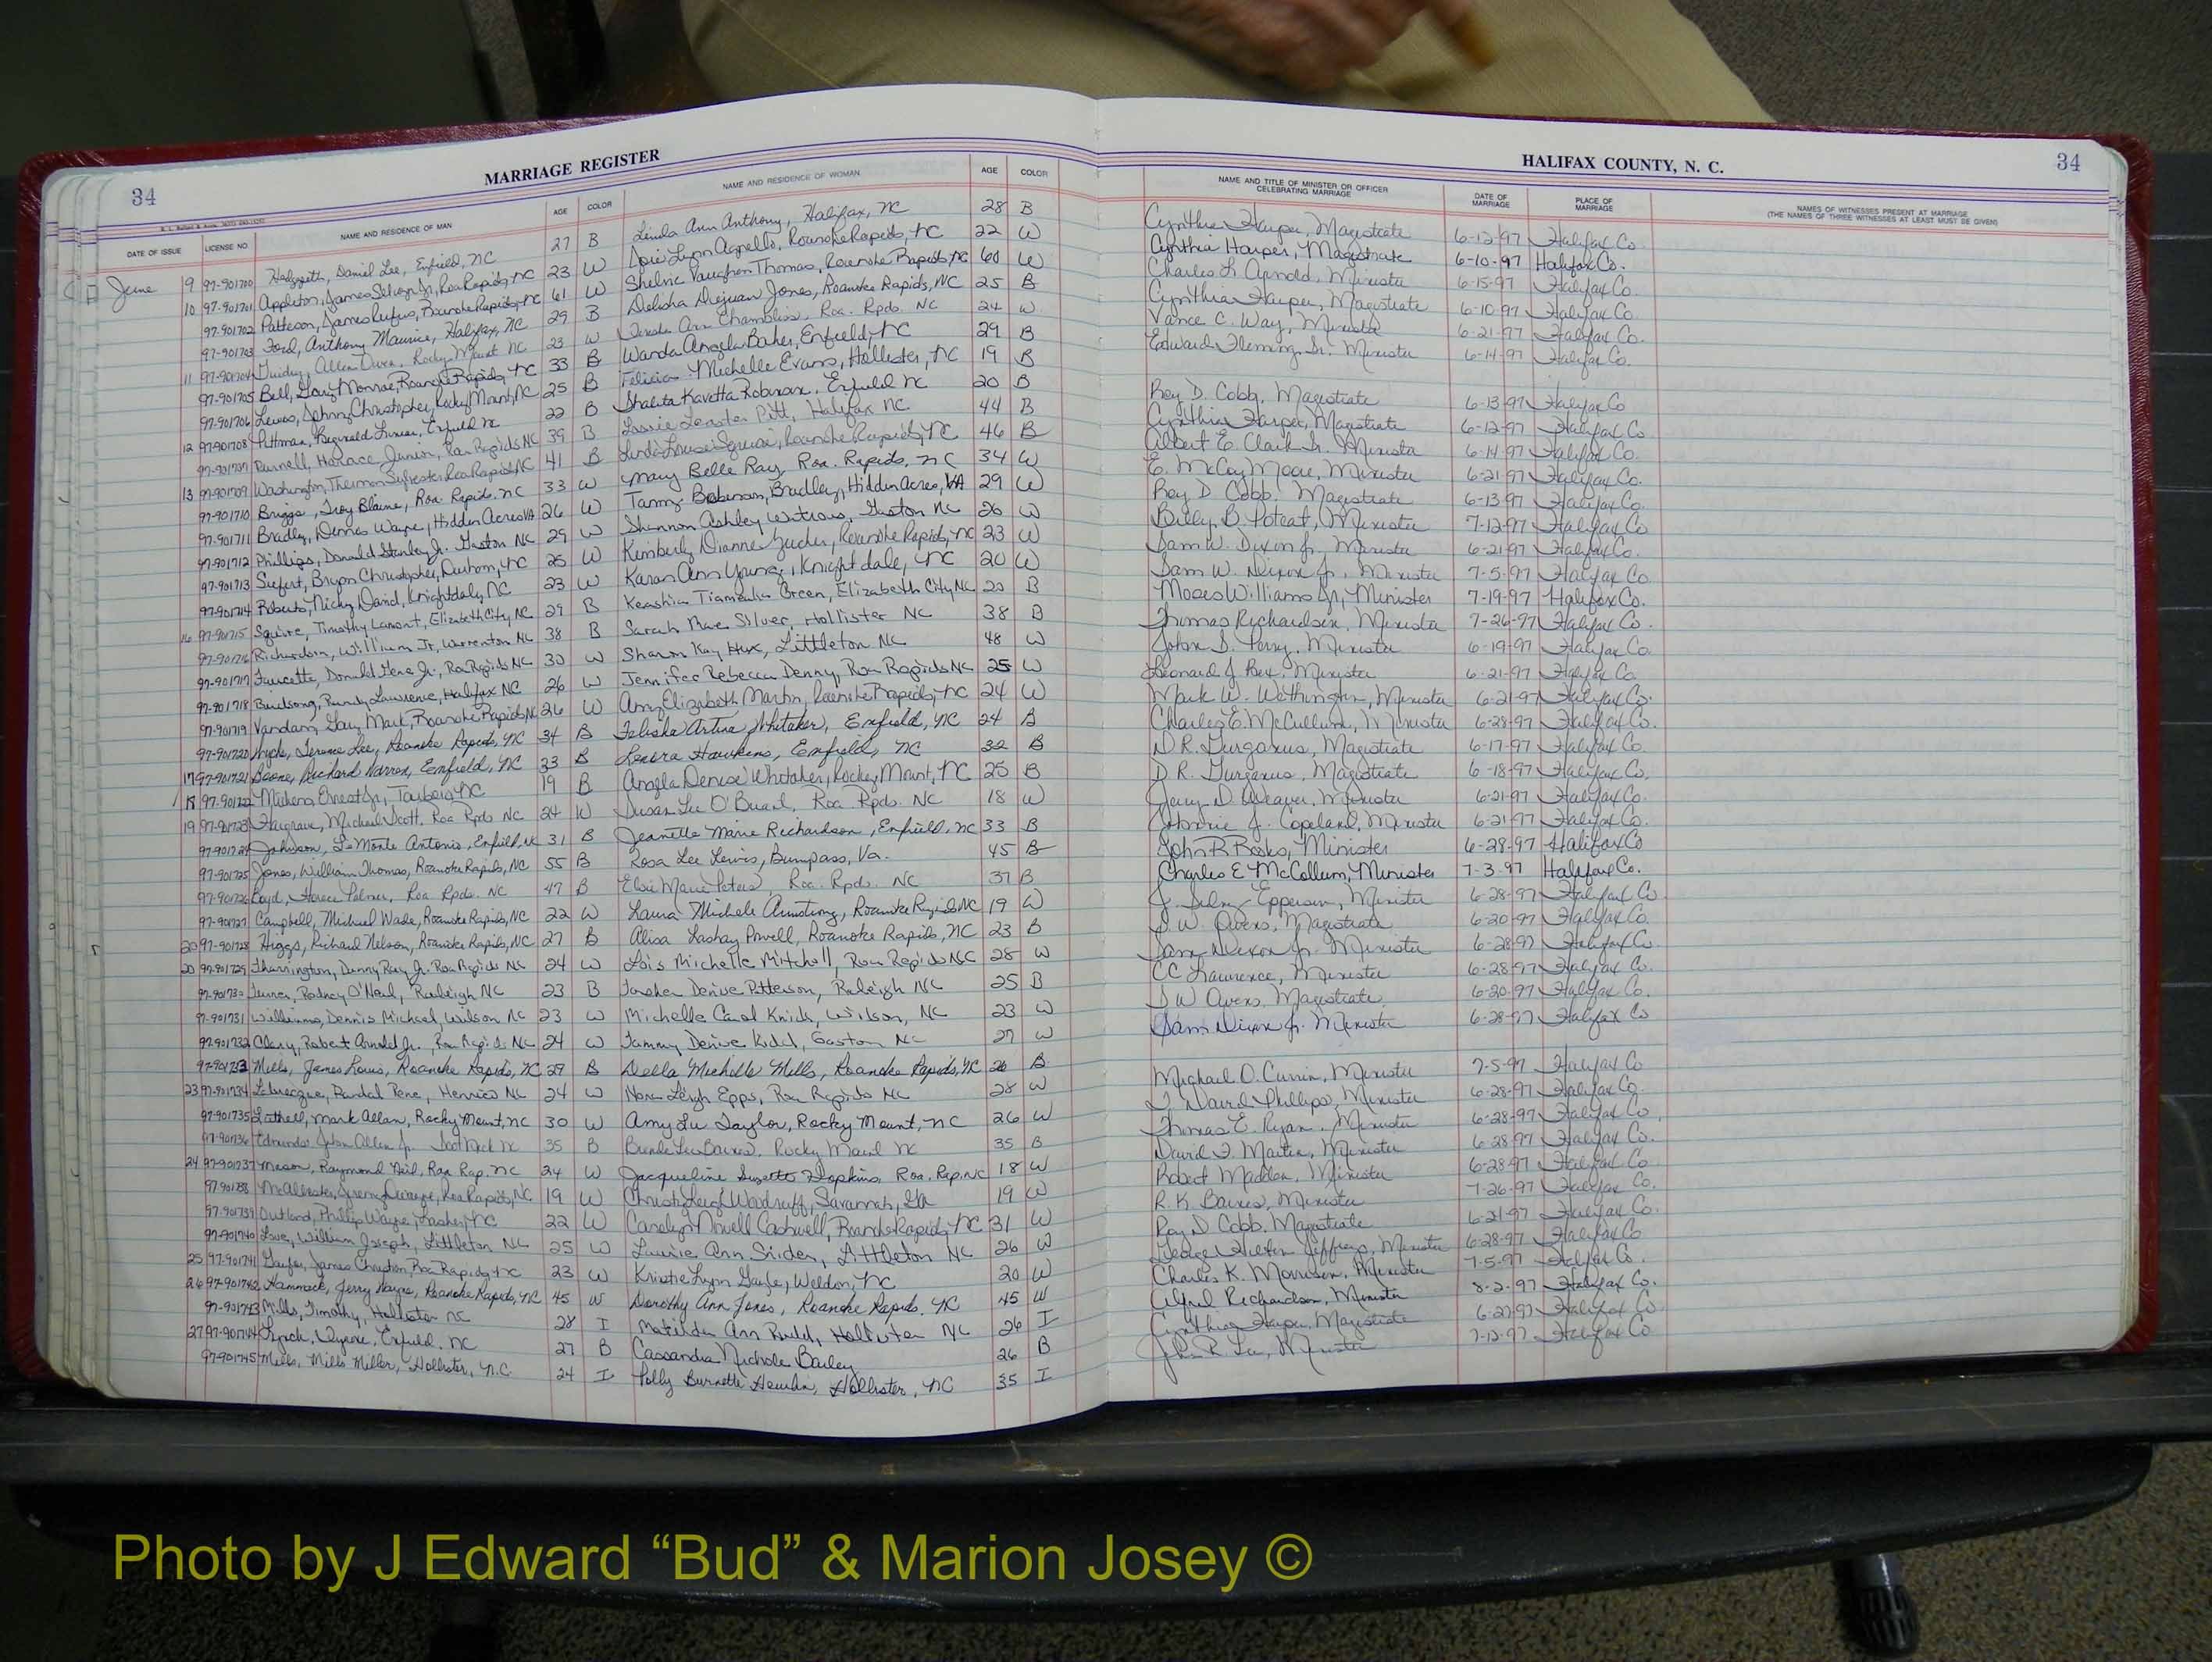 34 MARRIAGE REGISTER
HALIFAX COUNTY, N. C. 34
DATE OF ISSUE LICENSE NO. NAME AND RESIDENCE OF MAN AGE COLOR NAME AND RESIDENCE OF WOMAN AGE COLOR
NAME AND TITLE OF MINISTER OR OFFICER CELEBRATING MARRIAGE DATE OF MARRIAGE PLACE OF MARRIAGE NAMES OF WITNESSES PRESENT AT MARRIAGE (THE NAMES OF THREE WITNESSES AT LEAST MUST BE GIVEN)
June 9 97-901700 Daniel Lee, Enfield, NC 27 B Linda Ann Anthony, Halifax, NC 28 B
10 97-901701 Appleton, James Jr, Roa Rapids, NC 23 W Roanoke Rapids, NC 22 W
97-901702 Patterson, James Rufus, Roanoke Rapids, NC 61 W Vaughan Thomas, Roanoke Rapids, NC 60 W
97-901703 Ford, Anthony Maurice, Halifax, NC 29 B Jones, Roanoke Rapids, NC 25 B
11 97-901704 Rocky Mount NC 23 W Ann Chambliss, Roa. Rpds. NC 24 W
97-901705 Bell, Gary Monroe, Roanoke Rapids, NC 33 B Wanda Angela Baker, Enfield, NC 29 B
97-901706 Lewis, Johnny Christopher, Rocky Mount, NC 25 B Felicia Michelle Evans, Hollister, NC 19 B
12 97-901708 Pittman, Reginald Enfield NC 22 B Shalita Kavetta Robinson, Enfield NC 20 B
Burnell, Horace Junior, Roa Rapids NC 39 B Pitt, Halifax NC 44 B
13 97-901709 Washington, Thurman Sylvester, Roa Rapids NC 41 B Linda Louise Squire, Roanoke Rapids, NC 46 B
97-901710 Briggs, Troy Blaine, Roa. Rapids, NC 33 W Mary Belle Ray, Roa. Rapids, NC 34 W
97-901711 Bradley, Dennis Wayne, Hidden Acres VA 26 W Tammy Bradley, Hidden Acres, VA 29 W
97-901712 Phillips, Donald Stanley Jr. Gaston NC 29 W Shannon Ashley Gaston NC 26 W
97-901713 Siefert, Bryan Christopher, Durham, NC 25 W Kimberly Dianne Roanoke Rapids, NC 23 W
97-901714 Roberts, Nicky David, Knightdale, NC 23 W Karan Ann Young, Knightdale, NC 20 W
16 97-901715 Squire, Timothy Lamont, Elizabeth City, NC 29 B Keashia Green, Elizabeth City, NC 20 B
97-901716 Richardson, William Jr, Warrenton NC 38 B Sarah Silver, Hollister NC 38 B
97-901717 Faucette, Donald Gene Jr., Roa Rapids NC 30 W Sharon Kay Hux, Littleton NC 48 W
97-901718 Birdsong, Lawrence, Halifax NC 26 W Jennifer Rebecca Denny, Roa Rapids NC 25 W
97-901719 Mark, Roanoke Rapids, NC 26 W Amy Elizabeth Martin, Roanoke Rapids, NC 24 W
97-901720 Terence Lee, Roanoke Rapids, NC 34 B Felisha Artina Whitaker, Enfield, NC 24 B
17 97-901721 Boone, Richard Warren, Enfield, NC 33 B Hawkins, Enfield, NC 32 B
18 97-901722 Ernest Jr, Tarboro, NC 19 B Angela Denise Whitaker, Rocky Mount, NC 25 B
19 97-901723 Hargrave, Michael Scott, Roa Rpds NC 24 W Susan Lee Roa Rpds. NC 18 W
97-901724 Johnson, LaMonte Antonio, Enfield, NC 31 B Jeanette Marie Richardson, Enfield, NC 33 B
97-901725 Jones, William Thomas, Roanoke Rapids, NC 55 B Rosa Lee Lewis, Bumpass, Va. 45 B
97-901726 Boyd, Horace Palmer, Roa. Rpds. NC 47 B Elsie Marie Peters, Roa. Rpds. NC 37 B
97-901727 Campbell, Michael Wade, Roanoke Rapids, NC 22 W Laura Michele Armstrong, Roanoke Rapids NC 19 W
20 97-901728 Higgs, Richard Nelson, Roanoke Rapids, NC 27 B Alisa Lashay Powell, Roanoke Rapids, NC 23 B
20 97-901729 Tharrington, Danny Ray Jr. Roa Rapids NC 24 W Lois Michelle Mitchell, Roa Rapids NC 28 W
97-901730 Turner, Rodney O'Neal, Raleigh NC 23 B Denise Patterson, Raleigh NC 25 B
97-901731 Williams, Dennis Michael, Wilson NC 23 W Michelle Carol Wilson, NC 23 W
97-901732 Clary, Robert Arnold Jr., Roa Rapids NC 24 W Tammy Denise Kidd, Gaston NC 27 W
97-901733 Mills, James Louis, Roanoke Rapids, NC 27 B Della Michelle Mills, Roanoke Rapids, NC 26 B
23 97-901734 Labrecque, Randal Rene, Henrico NC 24 W Nora Leigh Epps, Roa Rapids NC 28 W
97-901735 Luttrell, Mark Allan, Rocky Mount, NC 30 W Amy Lu Taylor, Rocky Mount, NC 26 W
97-901736 Edmunds, John Allen Jr. Scot Neck NC 35 B Brenda Lee Barnes, Rocky Mount NC 35 B
24 97-901737 Mason, Raymond Neil, Roa Rap. NC 24 W Jacqueline Suzette Hopkins, Roa. Rap. NC 18 W
97-901738 McAllister, Jeremy Dewayne, Roa Rapids, NC 19 W Christy Leigh Woodruff, Savannah, GA 19 W
97-901739 Outland, Phillip Wayne, Lasker, NC 22 W Carolyn Novell Caswell, Roanoke Rapids, NC 31 W
97-901740 Love, William Joseph, Littleton NC 25 W Laurie Ann Snider, Littleton NC 26 W
25 97-901741 James Christian, Roa Rapids, NC 23 W Kristie Lynn Weldon, NC 20 W
26 97-901742 Hammack, Jerry Wayne, Roanoke Rapids, NC 45 W Dorothy Ann Jones, Roanoke Rapids, NC 45 W
97-901743 Mills, Timothy, Hollister NC 28 I Matilda Ann Hollister NC 26 I
27 97-901744 Lynch, Enfield, NC 27 B Cassandra Nichole Bailey 26 B
97-901745 Mills, Mills Miller, Hollister, N.C 24 I Polly Burnette Hollister, NC 35 I
Cynthia Harper, Magistrate 6-12-97 Halifax Co.
Cynthia Harper, Magistrate 6-10-97 Halifax Co.
Charles L Arnold, Minister 6-15-97 Halifax Co
Cynthia Harper, Magistrate 6-10-97 Halifax Co.
Vance C. Way, Minister 6-21-97 Halifax Co.
Edward Fleming, Sr. Minister 6-14-97 Halifax Co.
Roy D. Cobb, Magistrate 6-13-97 Halifax Co
Cynthia Harper, Magistrate 6-12-97 Halifax Co.
Albert E. Clark Sr. Minister 6-14-97 Halifax Co.
E. McCoy Moore, Minister 6-21-97 Halifax Co.
Roy D Cobb. Magistrate 6-13-97 Halifax Co.
Billy B. Poteat, Minister 7-12-97 Halifax Co
Sam W. Dixon Jr., Minister 6-21-97 Halifax Co.
Sam W. Dixon Jr., Minister 7-5-97 Halifax Co
Moses Williams Jr, Minister 7-19-97 Halifax Co.
Thomas Richardson, Minister 7-26-97 Halifax Co.
John S. Perry, Minister 6-19-97 Halifax Co.
Leonard J Minister 6-21-97 Halifax Co.
Mark W. Wethington, Minister 6-21-97 Halifax Co.
Charles E. McCullum, Minister 6-28-97 Halifax Co.
D R. Gurganus, Magistrate 6-17-97 Halifax Co.
D R. Gurganus, Magistrate 6-18-97 Halifax Co.
Jerry D. Weaver, Minister 6-21-97 Halifax Co.
Johnnie J. Copeland, Minister 6-21-97 Halifax Co.
John R Books, Minister 6-28-97 Halifax Co
Charles E McCollum, Minister 7-3-97 Halifax Co.
J. Epperson, Minister 6-28-97 Halifax Co.
D. W. Owens, Magistrate 6-20-97 Halifax Co.
Sam Dixon Jr. Minister 6-28-97 Halifax Co.
CC Lawrence, Minister 6-28-97 Halifax Co.
D W Owens, Magistrate 6-20-97 Halifax Co.
Sam Dixon Jr. Minister 6-28-97 Halifax Co
Michael D. Currin, Minister 7-5-97 Halifax Co
David Phillips, Minister 6-28-97 Halifax Co.
Thomas E. Ryan, Minister 6-28-97 Halifax Co.
David F. Martin, Minister 6-28-97 Halifax Co.
Robert Madden, Minister 6-28-97 Halifax Co
R. K. Barnes, Minister 7-26-97 Halifax Co.
Roy D Cobb, Magistrate 6-21-97 Halifax Co.
George Jeffreys, Minister 6-28-97 Halifax Co
Charles K. Morrison, Minister 7-5-97 Halifax Co.
Alfred Richardson, Minister 8-2-97 Halifax Co.
Cynthia Harper, Magistrate 6-27-97 Halifax Co
John R. Minister 7-12-97 Halifax Co
Photo by J Edward “Bud” & Marion Josey ©